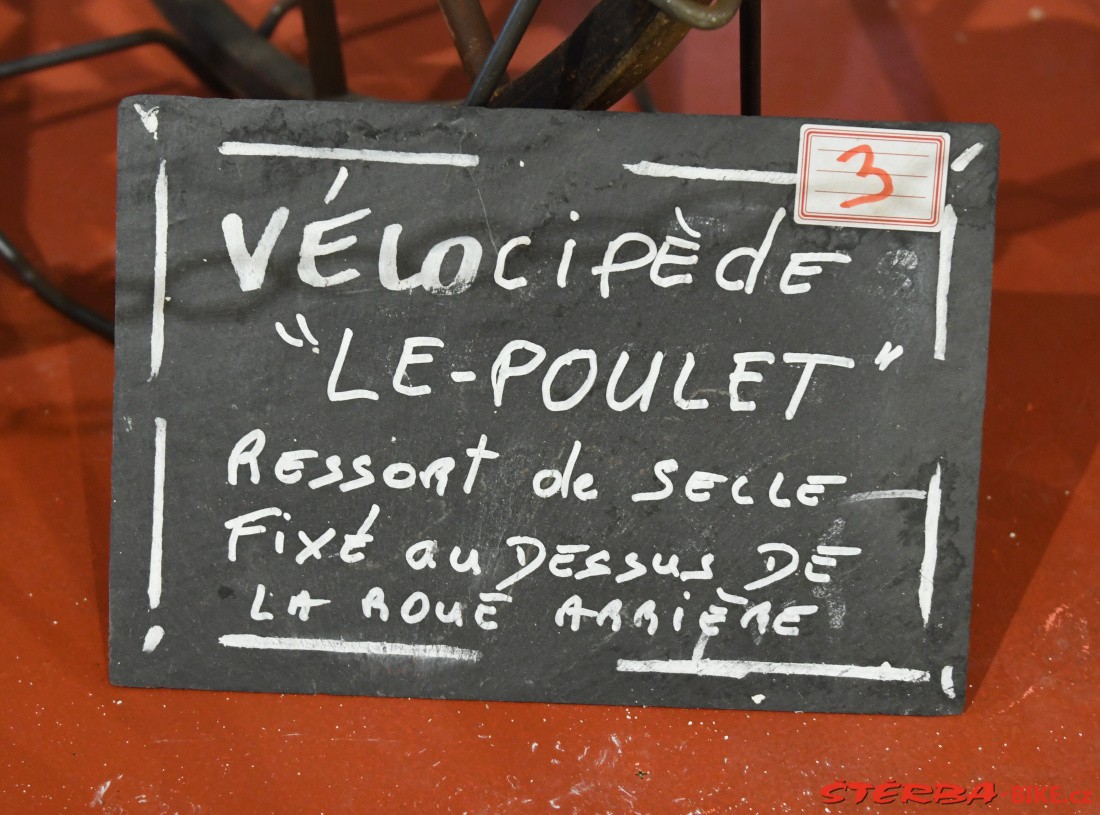 3
VÉLOCIPÈDE
"LE-POULET"
RESSORT de SELLE
Fixé au DESSUS DE
LA ROUE ARRIÈRE
ŠTĚRBA-BIKE.cz